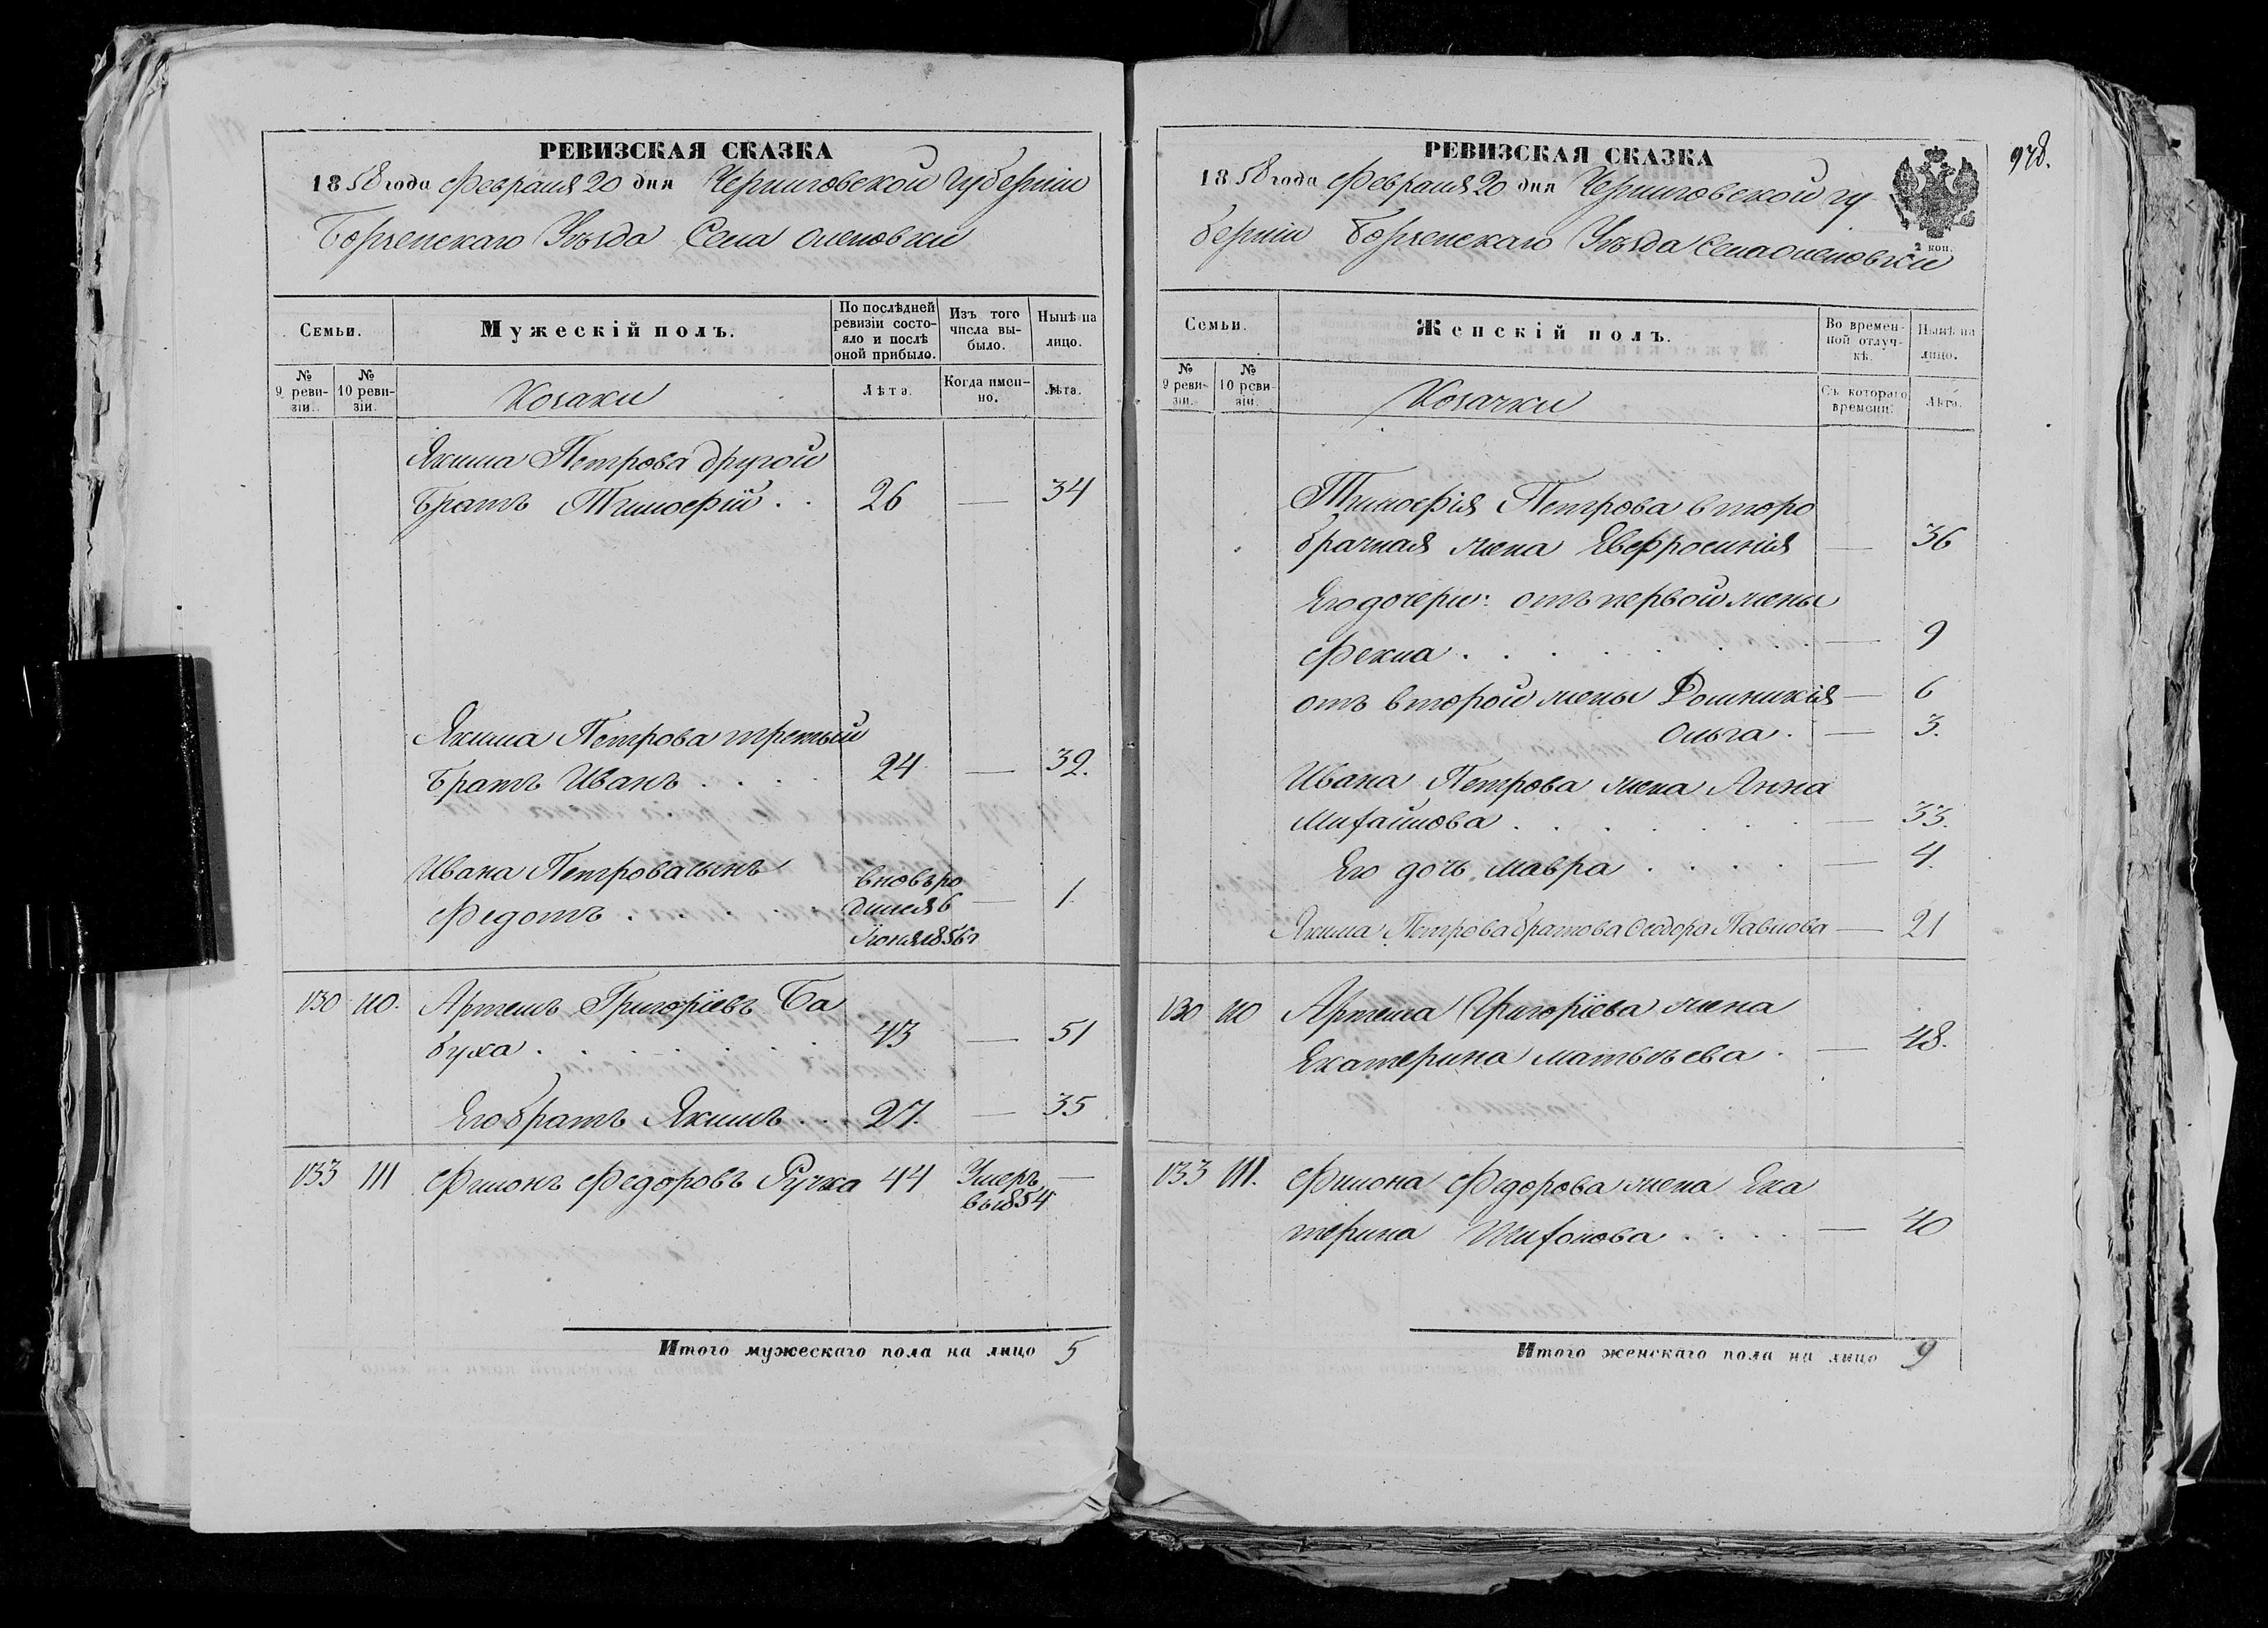 РЕВИЗСКАЯ СКАЗКА
1858 года Февраля 20 дня Черниговской Губерніи
Борзенскаго Уѣзда Села Оленовки
Семьи.
Мужескій полъ.
По послѣдней ревизіи состояло и послѣ оной прибыло.
Изъ того числа выбыло.
Нынѣ на лицо.
№ 9 ревизіи.
№ 10 ревизіи.
Козаки
Лѣта.
Когда именно.
Лѣта.
Якима Петрова другой
братъ Тимофій . . 26 — 34
Якима Петрова третый
братъ Иванъ . . . . 24 — 32.
Ивана Петрова сынъ
Федотъ . . . . .
вновь ро
дился 6
Іюня 1856 г
— 1.
130 110. Артемъ Григоріевъ Ба
буха . . . . . . . 43 — 51
Его братъ Якимъ . . 27. — 35
133 111 Филонъ Федоровъ Ручка 44
Умеръ
въ 1854
—
Итого мужескаго пола на лицо 5
РЕВИЗСКАЯ СКАЗКА
978.
1858 года Февраля 20 дня Черниговской гу
берніи Борзенскаго Уѣзда Села Оленовки
2 коп.
Семьи.
Женскій полъ.
Во временной отлучкѣ.
Нынѣ на лицо.
№ 9 ревизіи.
№ 10 ревизіи.
Козачки
Съ котораго времени.
Лѣта.
Тимофія Петрова второ
брачная жена Евфросинія — 36
Его дочери: отъ первой жены
Фекла . . . . . . — 9
отъ второй жены Домникія — 6
Ольга . — 3.
Ивана Петрова жена Анна
Михайлова . . . . . . — 33.
Его дочь Мавра . . . . — 4.
Якима Петрова братова Феодора Павлова — 21
130 110 Артема Григоріева жена
Екатерина Матвѣева . — 48.
133 111. Филона Федорова жена Ека
терина Тихонова . . . . — 40
Итого женскаго пола на лицо 9